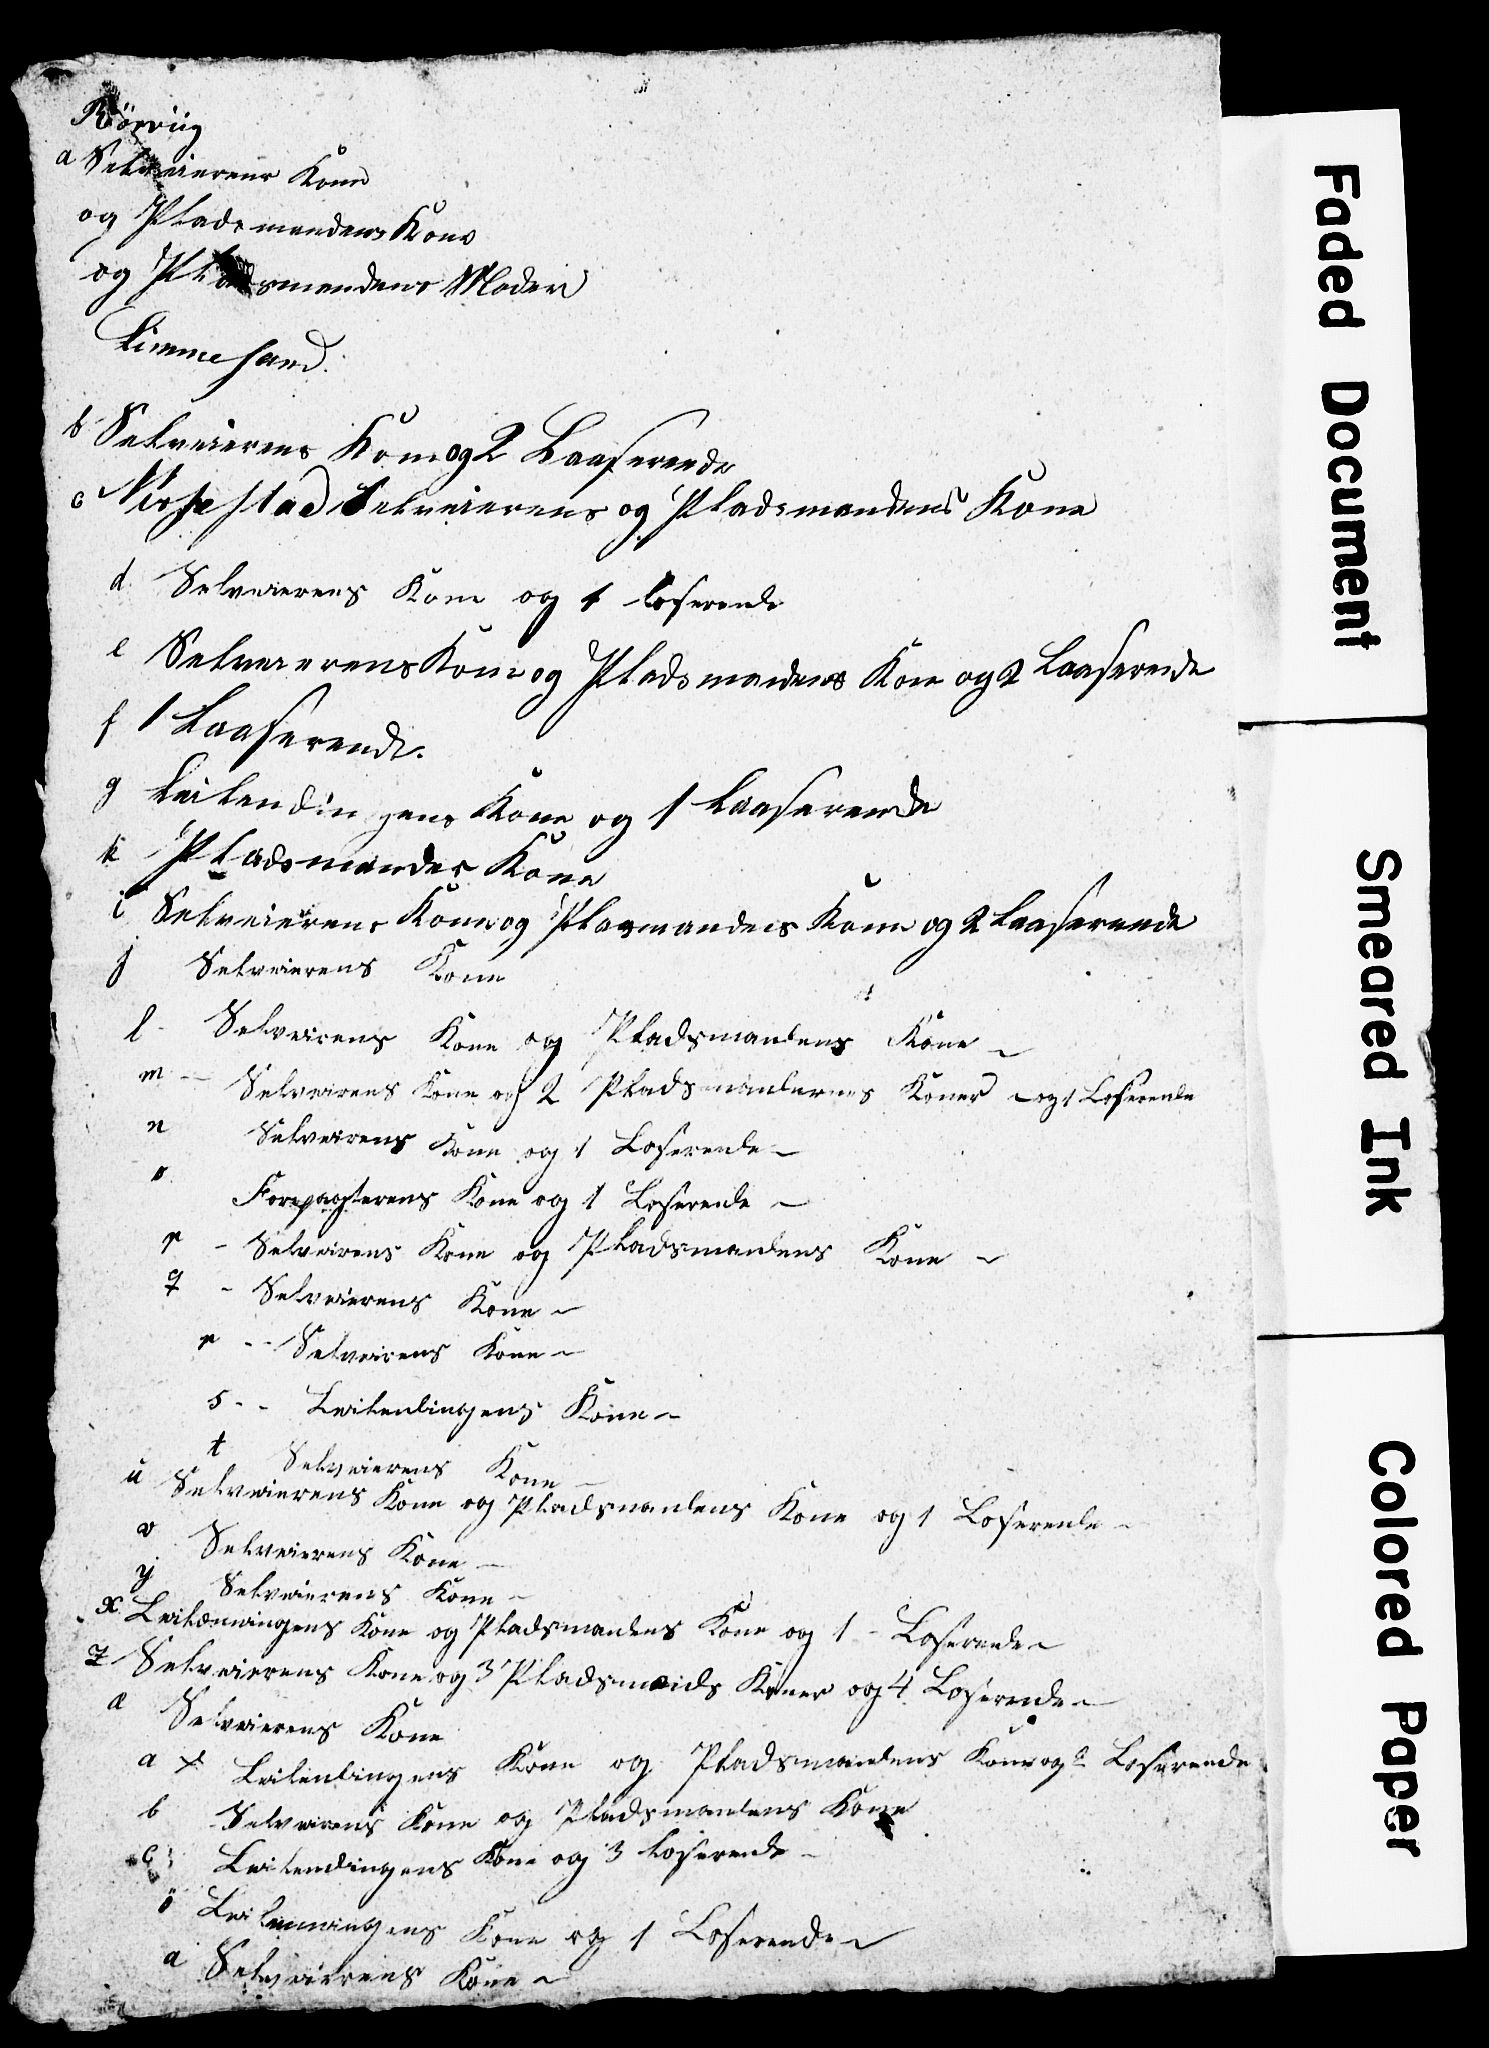 Rörviig
a Selveierens Kone
og Pladsmandens Kone
og Pladsmandens Moder
Kimmesand.
b Selveierens Kone og 2 Laaserende
c Selveierens og Pladsmandens Kone
d Selveierens Kone og 1 loserende
e Selveierens Kone og Pladsmandens Kone og 2 Laaserende
f 1 Laaserende.
g Leilendingens Kone og 1 Laaserende
k Pladsmandes Kone
i Selveierens Kone og Plasmandens Kone og 2 Laaserende
j Selveierens Kone
l - Selveirens Kone og Pladsmandens Kone ~
m - - Selveirens Kone og 2 Pladsmandernes Koner og 1 Loserende
n Selveirens Kone og 1 Loserende ~
o Forpagterens Kone og 1 Loserende ~
p - Selveirens Kone og Pladsmandens Kone ~
q - Selveierens Kone ~
r - - Selveirens Kone ~
s - - Leilendingens Kone ~
t Selveierens Kone -
u Selveierens Kone og Pladsmandens Kone og 1 Loserende -
v Selveierens Kone -
y Selveierens Kone -
x Leilænningens Kone og Pladsmandens Kone og 1 - Loserende ~
z Selveierens Kone og 3 Pladsmænds Koner og 4 Loserende ~
æ Selveierens Kone
a x Leilendingens Kone og Pladsmandens Kone og 2 Loserende
b Selveirens Kone og Pladsmandens Kone
c Leilendingens Kone og 3 loserende -
ö Leilænningens Kone og 1 Loserende ~
a Selveierens Kone ~
Faded Document
Smeared Ink
Colored Paper